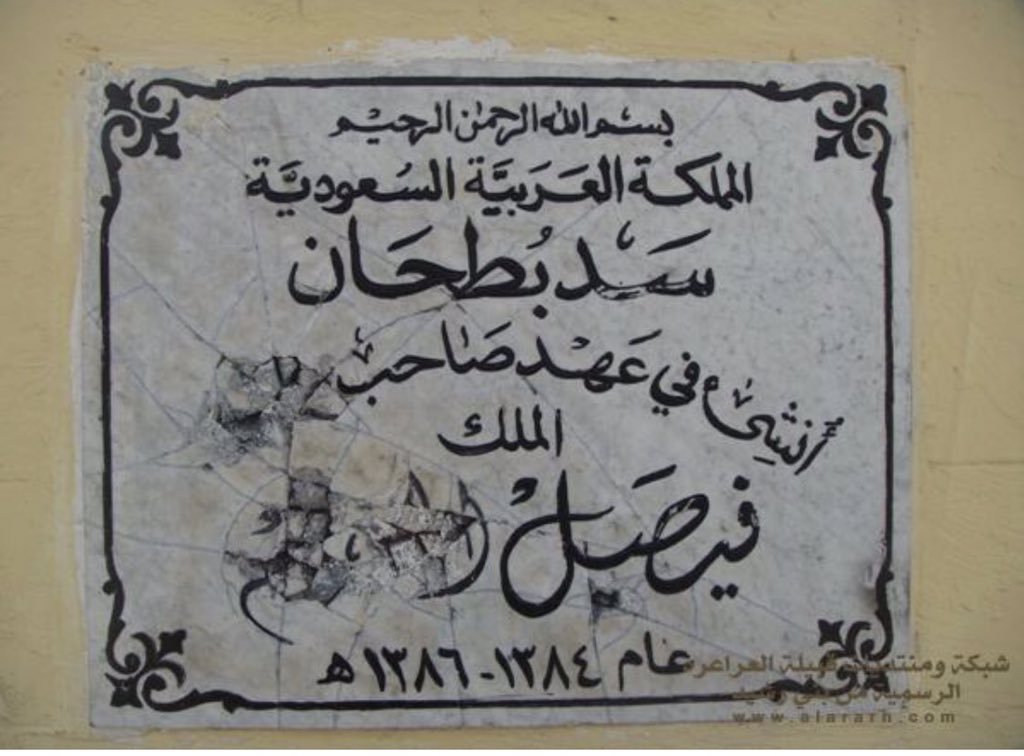 بسم الله الرحمن الرحيم
المملكة العَرَبيَّة السُعوديَّة
سَد بُطحَان
أُنشِئ في عَهد صَاحب
الملك
فيصَل
عام ١٣٨٤-١٣٨٦ه
شبكة ومنتديات قبيلة العراعرة
الرسمية من بني رشيد
www.alararh.com